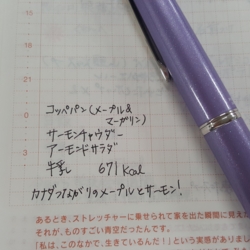 15
18
21
0
3
コッペパン(メープル&
マーガリン)
サーモンチャウダー
アーモンドサラダ
牛乳 671kcal
カナダつながりのメープルとサーモン!
あるとき、ストレッチャーに乗せられて家を出た瞬間に見えた
それが、ものすごい青空だったんです。
「私は、このなかで、生きているんだ!」という実感がありまし